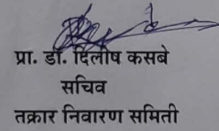 प्रा. डॉ. दिलीप कसबे
सचिव
तक्रार निवारण समिती